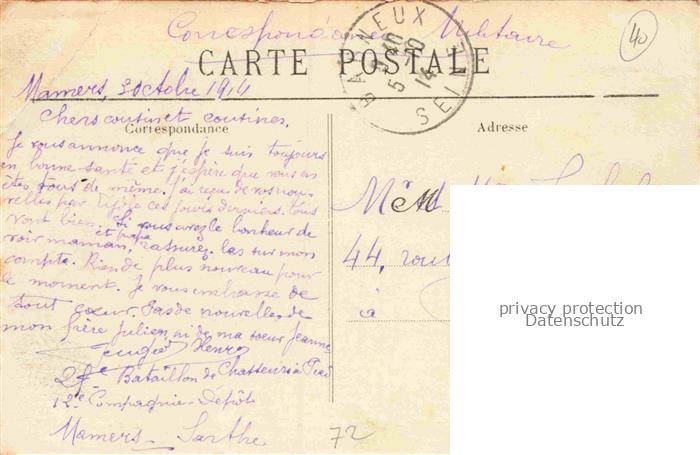 Correspondance Militaire
CARTE POSTALE
BAGNEUX
5 10 14
SEINE
40
Mamers, 3 Octobre 1914
Chers cousins et cousines,
Correspondance
Adresse
Je vous annonce que je suis toujours
en bonne santé et j'espère que vous en
êtes tous de même. J'ai reçu de vos nou-
velles par ces jours derniers. Tous
vont bien. Si vous avez le bonheur de
voir maman, et papa rassurez-les sur mon
compte. Rien de plus nouveau pour
le moment. Je vous embrasse de
tout cœur. Pas de nouvelles de
mon frère Julien, ni de ma sœur Jeanne
Henry
Bataillon de Chasseurs à Pied
12e Compagnie - Dépôt
Mamers - Sarthe
72
44, rou
à
privacy protection
Datenschutz